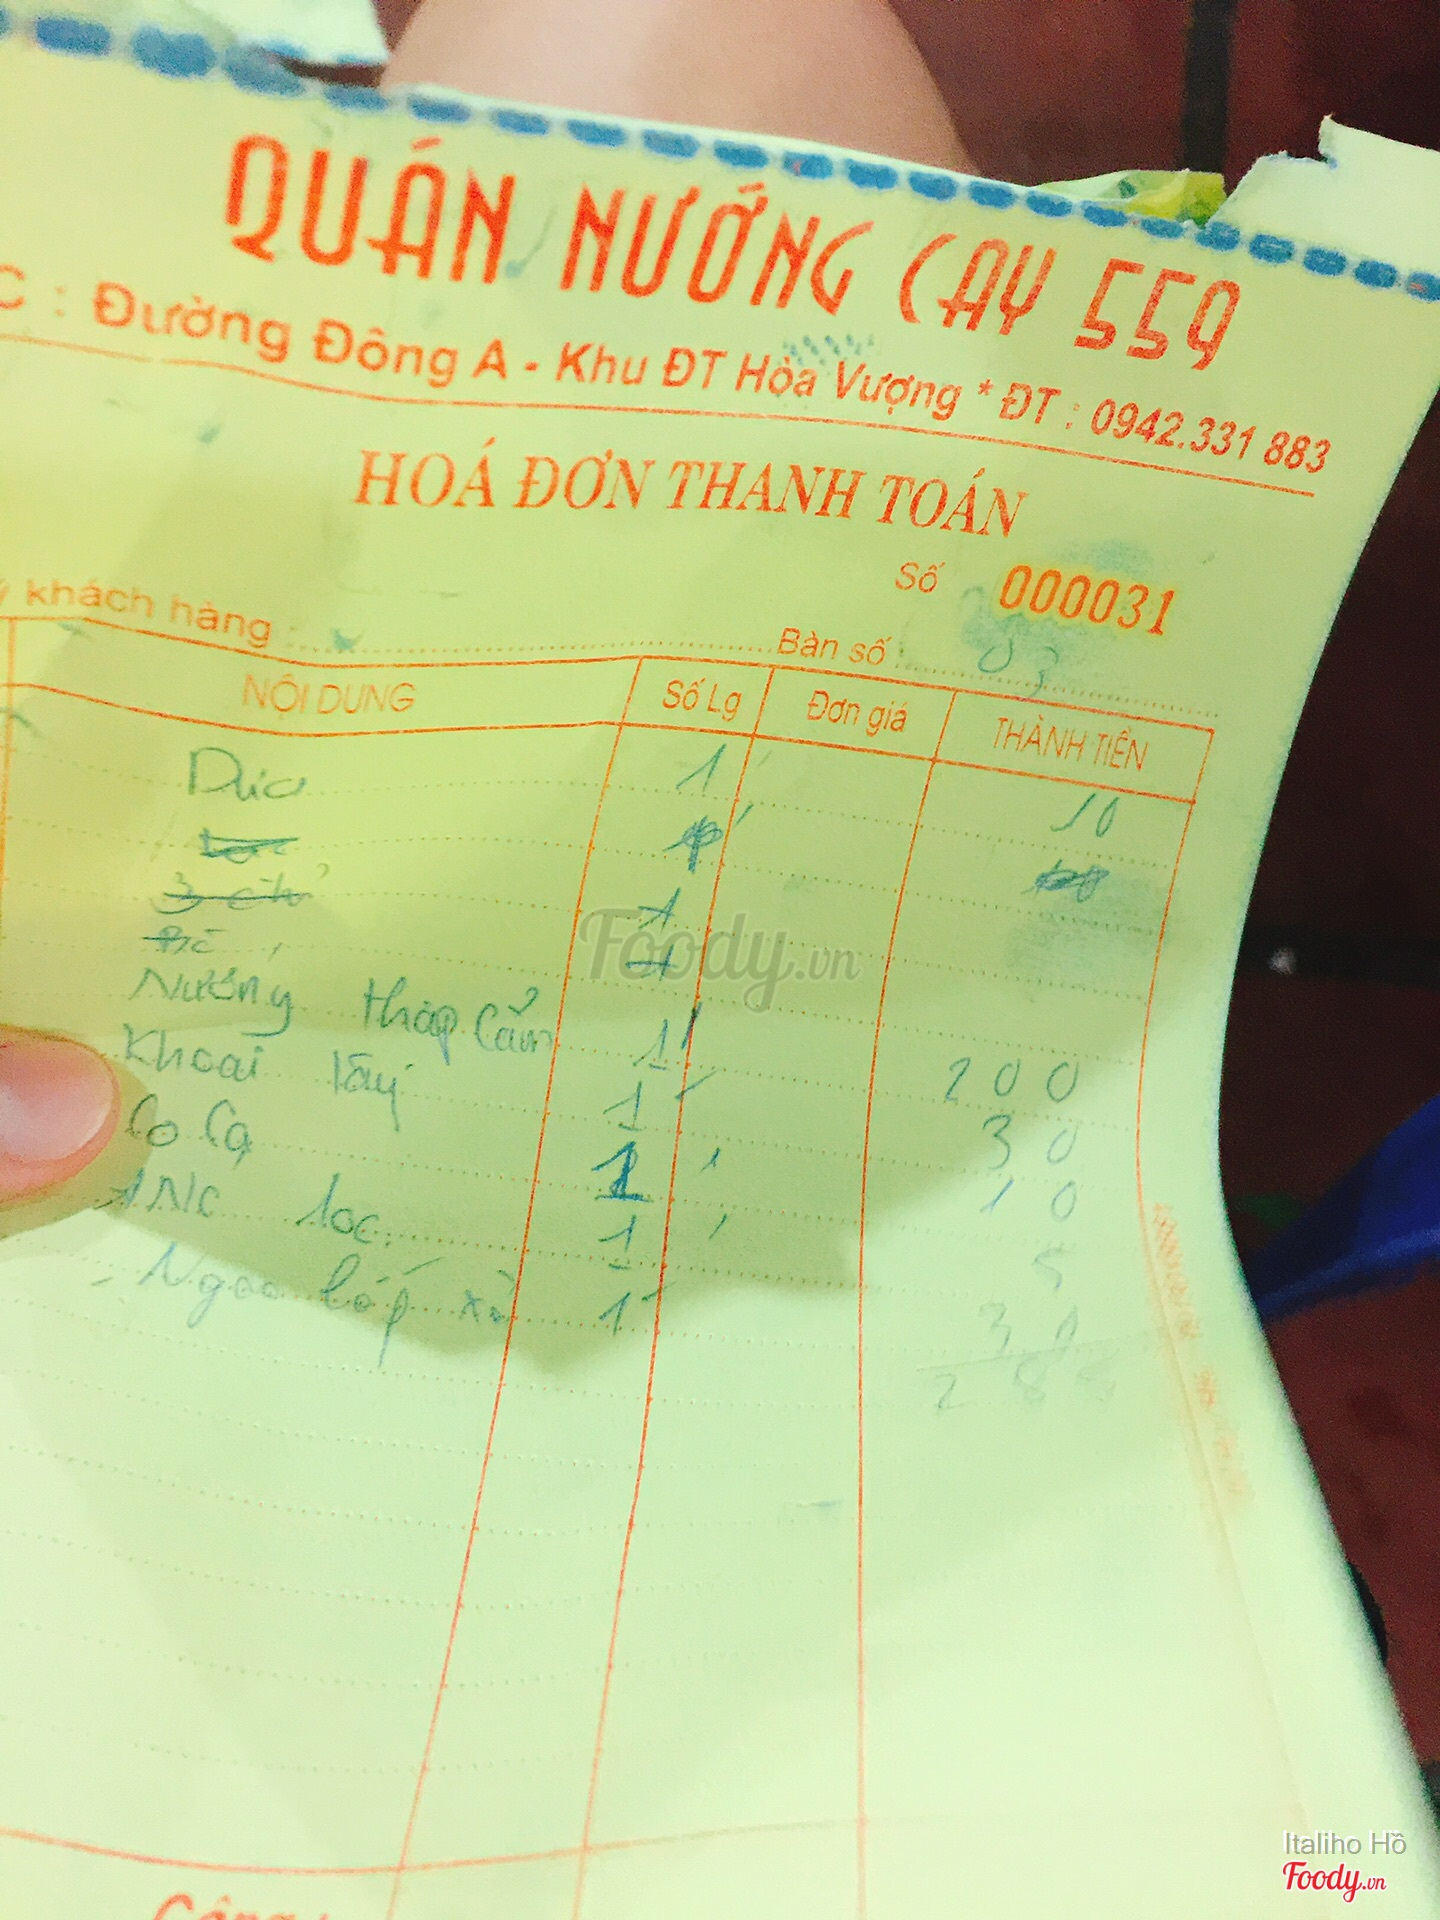 QUÁN NƯỚNG CAY 559
C : Đường Đông A - Khu ĐT Hòa Vượng * ĐT : 0942.331 883
HOÁ ĐƠN THANH TOÁN
Số 000031
khách hàng : Bàn số : 03
NỘI DUNG Số Lg Đơn giá THÀNH TIỀN
Dứa 1 10
Nướng thập cẩm 1 200
Khoai lây 1 30
Co Ca 1 10
1 Nc loc 1 5
Ngao lốp xà 1 30
285
Foody.vn
Cộng :
Italiho Hồ
Foody.vn